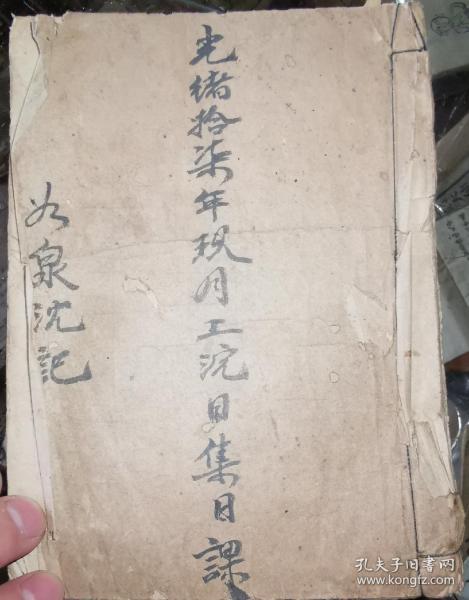 光緒拾柒年現月工浣日集日課
泉沈記
孔夫子旧书网
www.kongfz.com